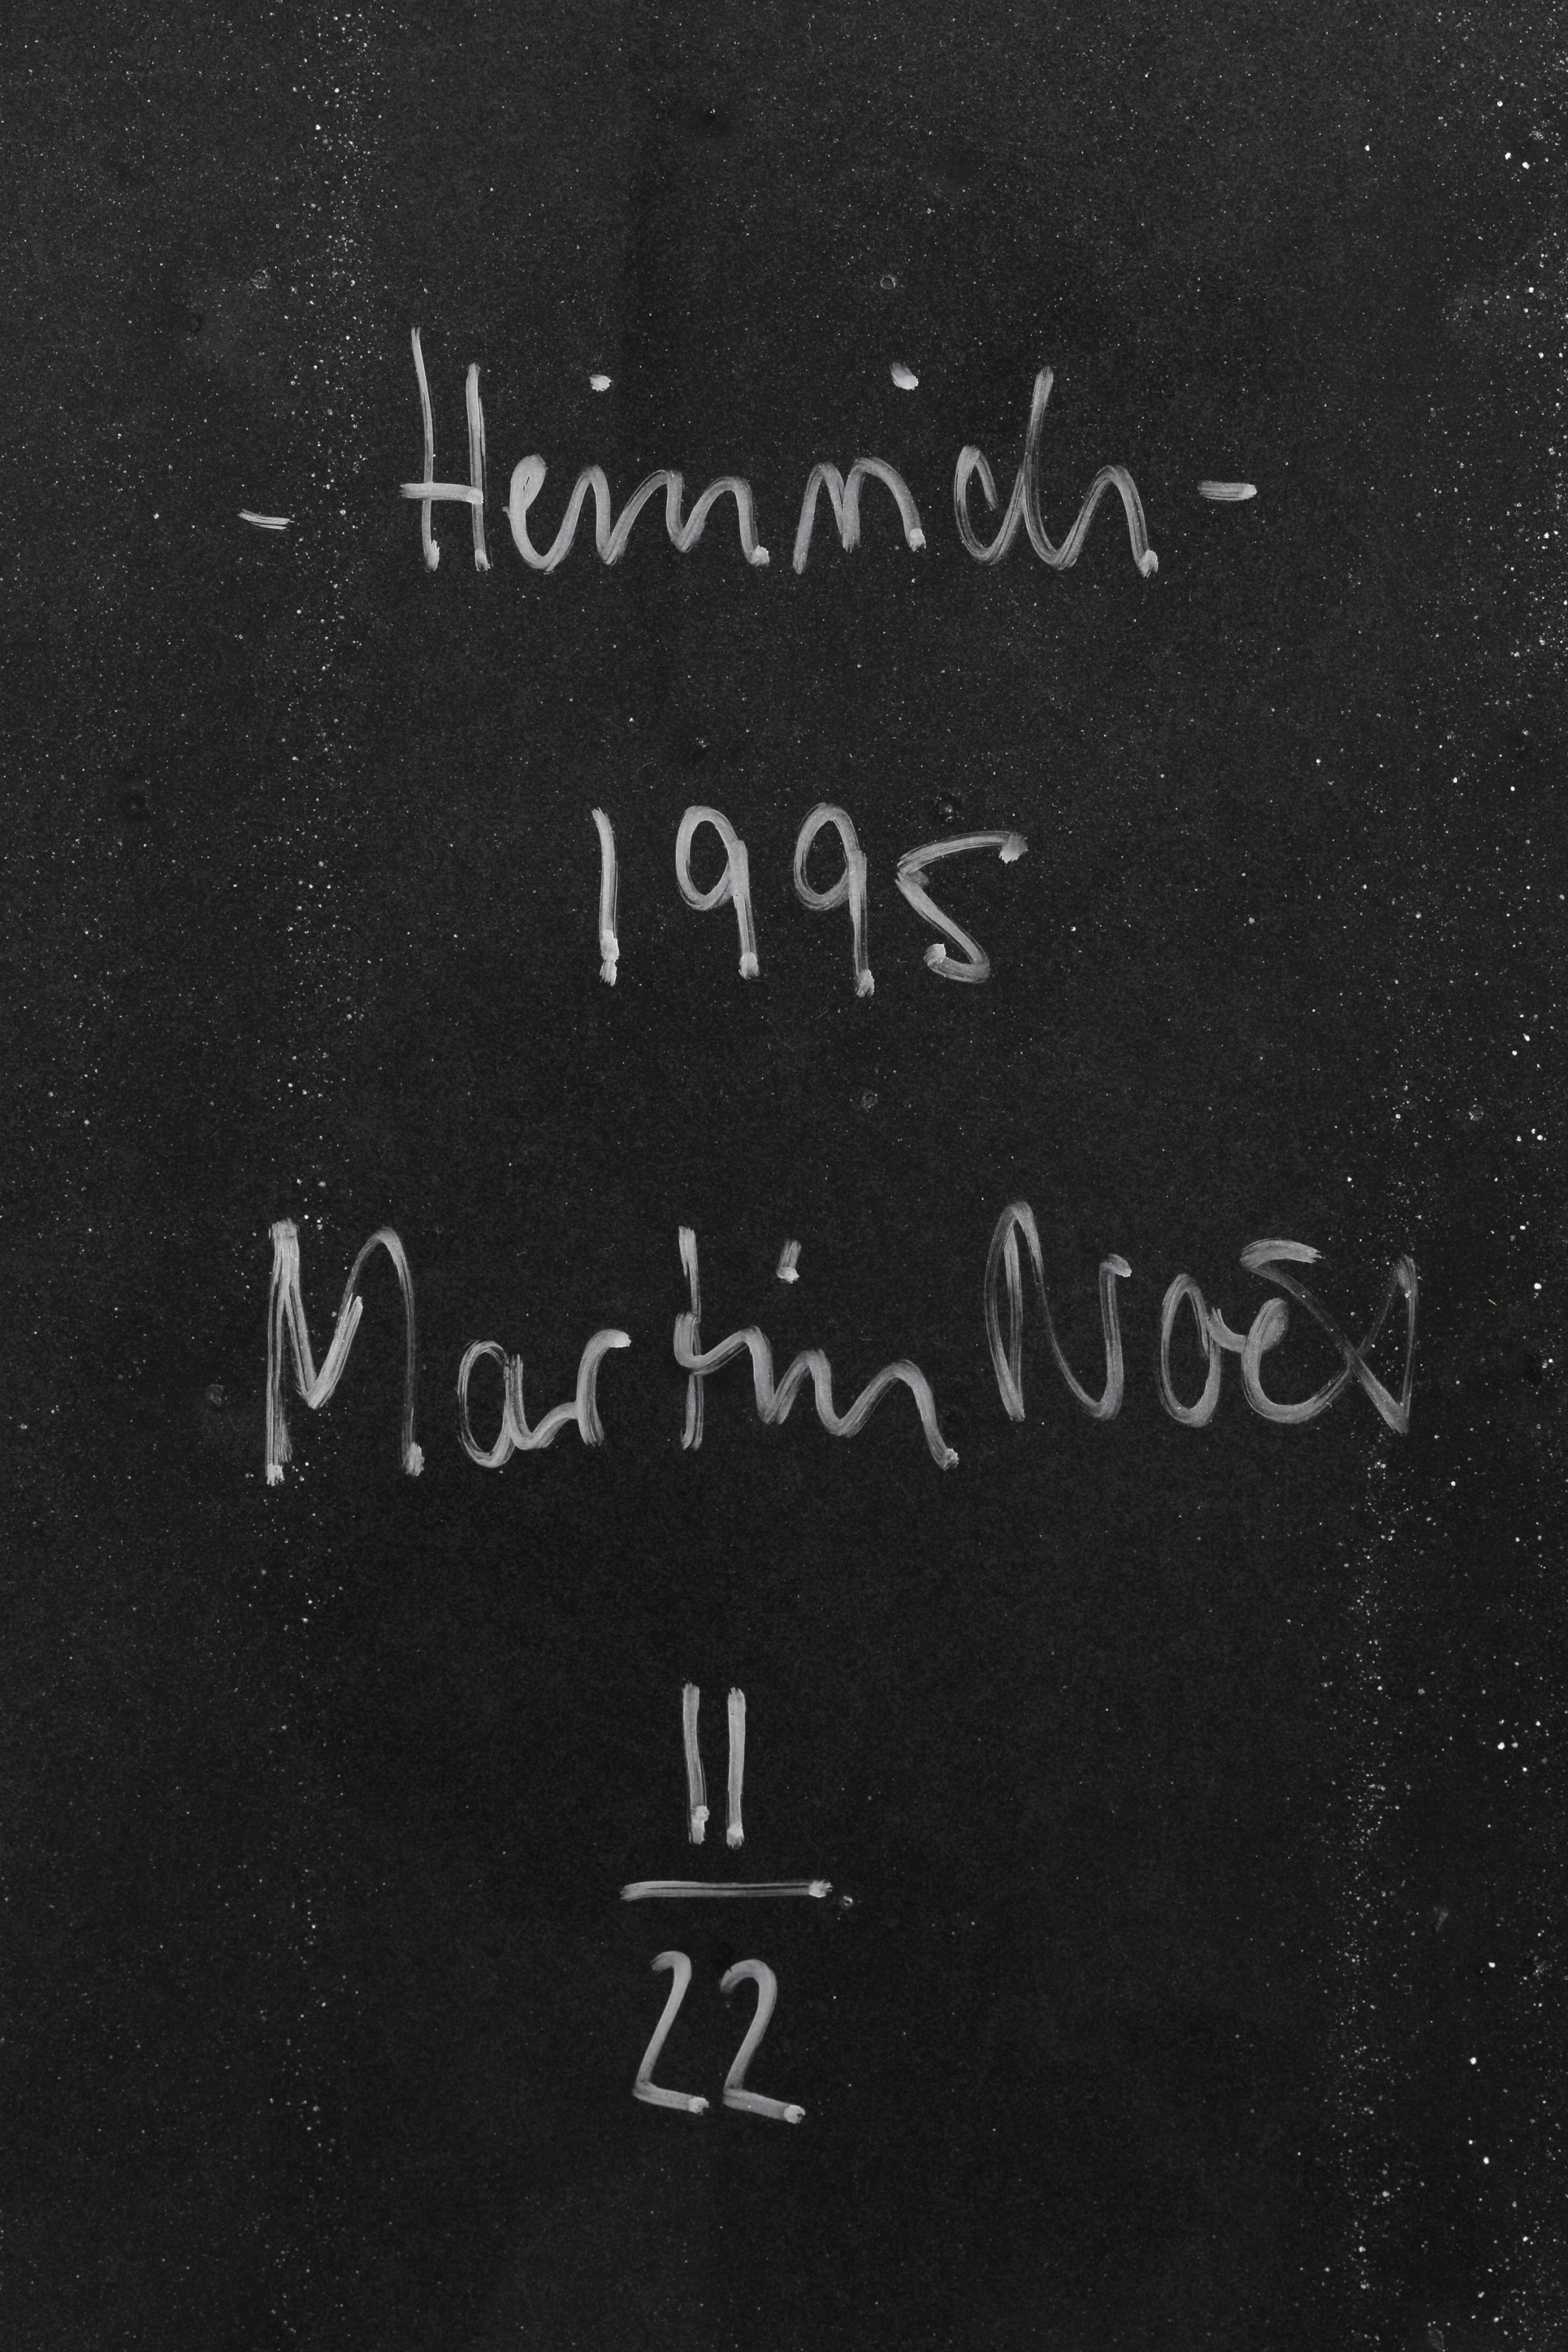 - Heinrich -
1995
Martin Noël
11
22